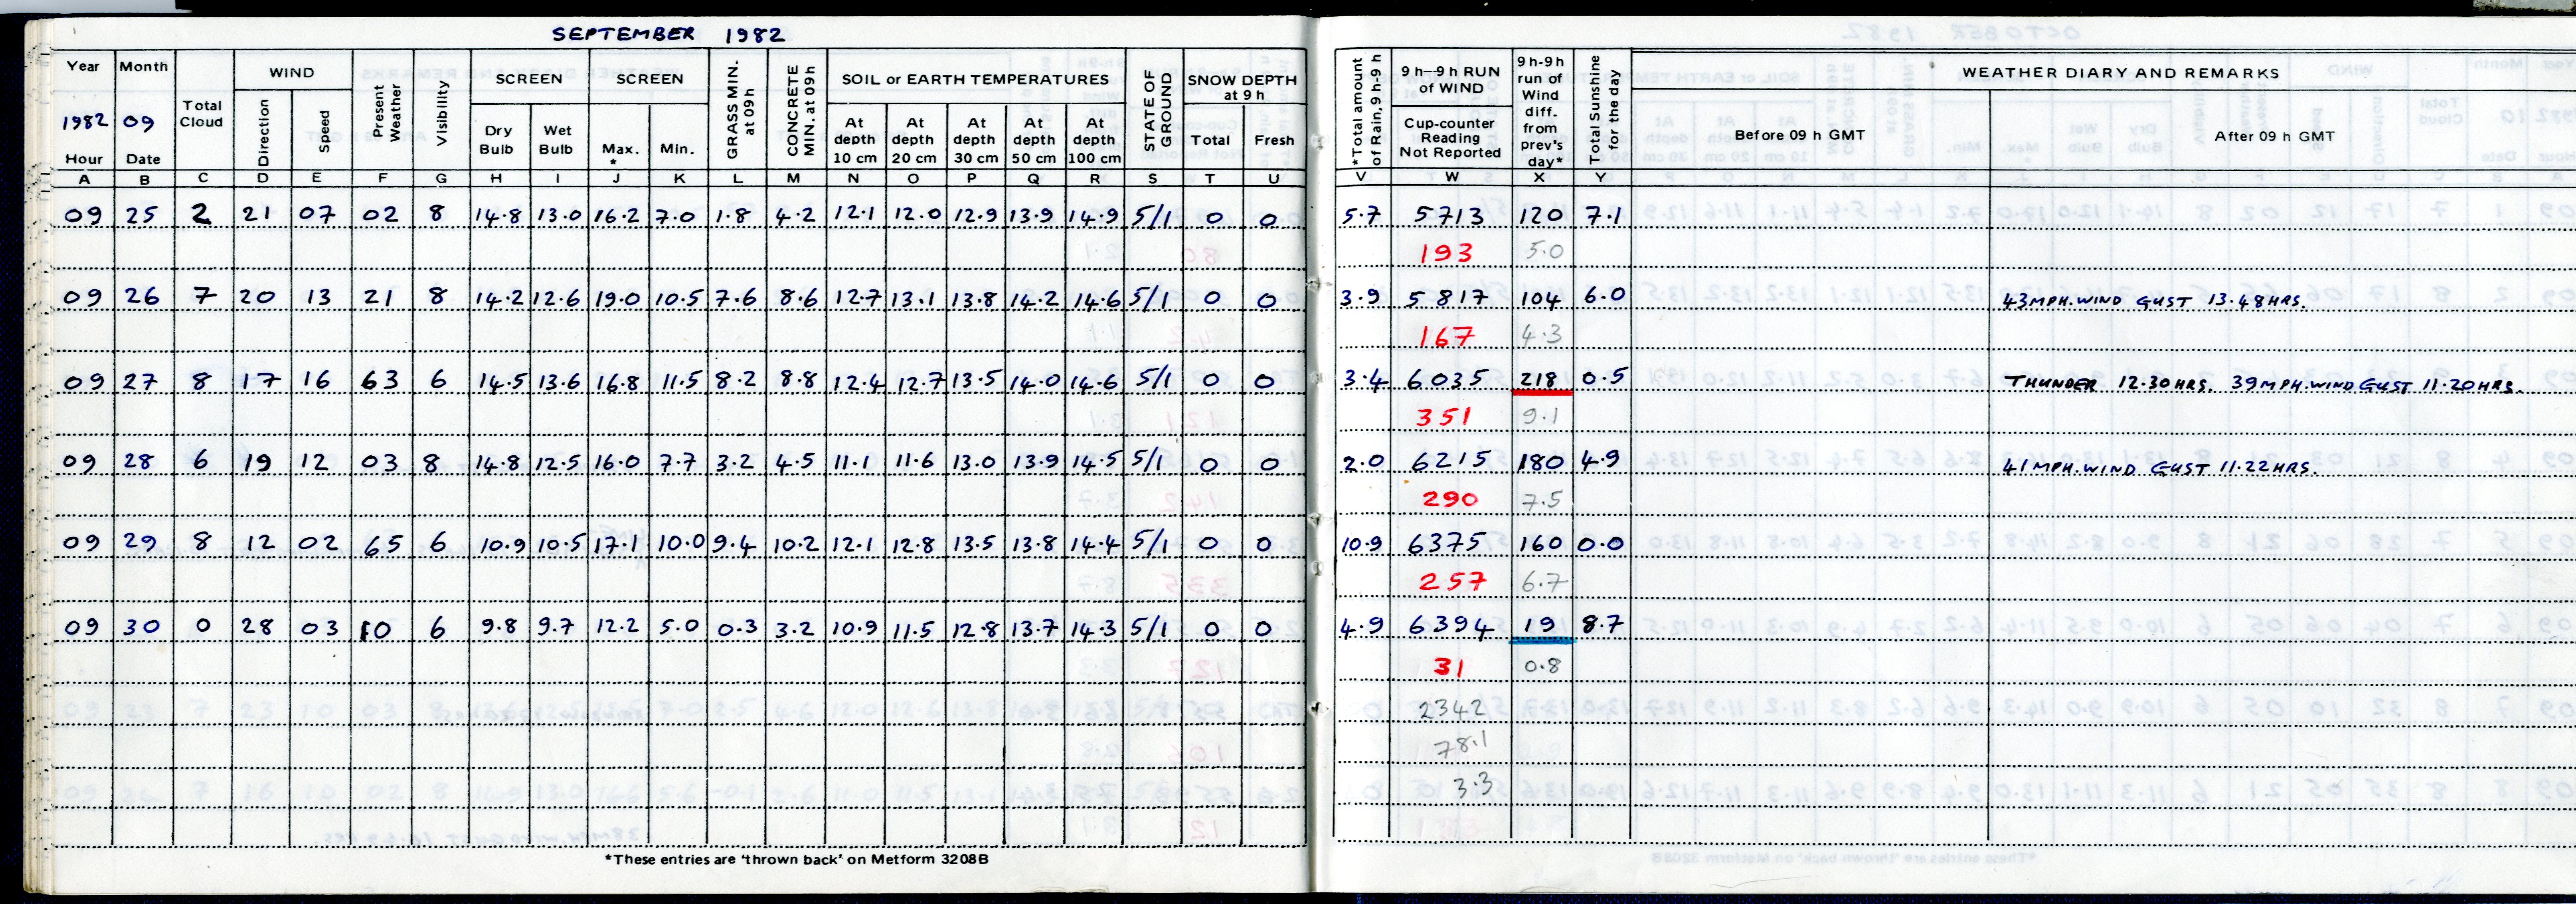 SEPTEMBER 1982
Year Month Total Cloud WIND Present Weather Visibility SCREEN SCREEN GRASS MIN. at 09h CONCRETE MIN. at 09h SOIL or EARTH TEMPERATURES STATE OF GROUND SNOW DEPTH at 9 h *Total amount of Rain, 9h-9h 9 h–9 h RUN of WIND 9h-9h run of Wind diff. from prev's day* Total Sunshine for the day WEATHER DIARY AND REMARKS
1982 09 Direction Speed Dry Bulb Wet Bulb Max. * Min. At depth 10 cm At depth 20 cm At depth 30 cm At depth 50 cm At depth 100 cm Total Fresh Cup-counter Reading Not Reported Before 09 h GMT After 09 h GMT
Hour Date
A B C D E F G H I J K L M N O P Q R S T U V W X Y
09 25 2 21 07 02 8 14.8 13.0 16.2 7.0 1.8 4.2 12.1 12.0 12.9 13.9 14.9 5/1 0 0 5.7 5713 120 7.1
193 5.0
09 26 7 20 13 21 8 14.2 12.6 19.0 10.5 7.6 8.6 12.7 13.1 13.8 14.2 14.6 5/1 0 0 3.9 5817 104 6.0 43MPH.WIND GUST 13.48HRS.
167 4.3
09 27 8 17 16 63 6 14.5 13.6 16.8 11.5 8.2 8.8 12.4 12.7 13.5 14.0 14.6 5/1 0 0 3.4 6035 218 0.5 THUNDER 12.30HRS. 39MPH.WIND GUST 11.20HRS.
351 9.1
09 28 6 19 12 03 8 14.8 12.5 16.0 7.7 3.2 4.5 11.1 11.6 13.0 13.9 14.5 5/1 0 0 2.0 6215 180 4.9 41MPH.WIND GUST 11.22HRS.
290 7.5
09 29 8 12 02 65 6 10.9 10.5 17.1 10.0 9.4 10.2 12.1 12.8 13.5 13.8 14.4 5/1 0 0 10.9 6375 160 0.0
257 6.7
09 30 0 28 03 10 6 9.8 9.7 12.2 5.0 0.3 3.2 10.9 11.5 12.8 13.7 14.3 5/1 0 0 4.9 6394 19 8.7
31 0.8
2342
78.1
3.3
*These entries are 'thrown back' on Metform 3208B